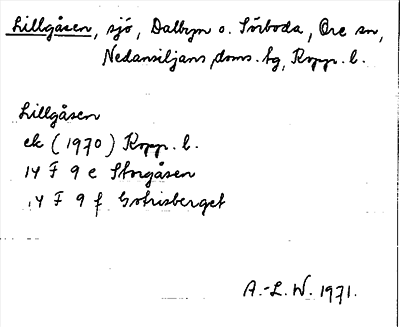 Lillgåsen, sjö, Dalbyn o. Sörboda, Ore sn,
Nedansiljans doms. hg, Kopp. l.
Lillgåsen
ek (1970) Kopp. l.
14 F 9 e Storgåsen
14 F 9 f Gotrisberget
A.-L. W. 1971.